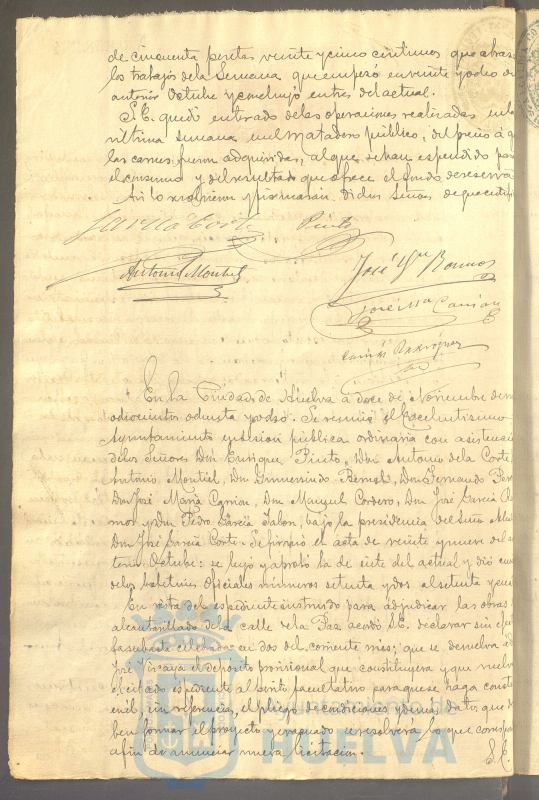 de cincuenta pesetas veinte y cinco centimos que abra
los trabajos de la semana que empezó en veinte y ocho de
anterior Octubre y concluyó en tres del actual.
S. E. quedó enterado de las operaciones realizadas en la
última semana en el Matadero público, del precio á q
las carnes fueron adquiridas, al que se han espendido para
el consumo y del resultado que ofrece el fondo de reserva
Así lo acordaron y firmarán dichos Señores de que certifi
García Corte Pinto
Antonio Montiel José Gª Ramos
José Mª Carrion
Rodriguez
En la Ciudad de Huelva á doce de Noviembre de mil
ochocientos ochenta y ocho. Se reunió el Excelentisimo
Ayuntamiento en sesion pública ordinaria con asistencia
de los Señores Don Enrique Pinto, Don Antonio de la Corte,
Antonio Montiel, Don Gumersindo Bernal, Don Fernando
Don José María Carrion, Don Manuel Cordero, Don José García Ra
mos y Don Pedro García Jalon, bajo la presidencia del Señor Alcal
Don José García Corte. Se firmó el acta de veinte y nueve del an
terior Octubre: se leyó y aprobó la de siete del actual y dió cuen
de los boletines Oficiales números setenta y dos al setenta y
En vista del espediente instruido para adjudicar las obras
alcantarillado de la calle de la Paz acordó S. E. declarar sin efec
la subasta celebrada en dos del corriente mes; que se devuelva á
José Vizcaya el depósito provisional que constituyera y que vuelva
el citado espediente al perito facultativo para que se haga const
en él, sin referencia, el pliego de condiciones y demas datos que de
ben formar el proyecto y evacuado se resolverá lo que corresp
á fin de anunciar nueva licitacion.
S. E.
Ayuntamiento de
HUELVA